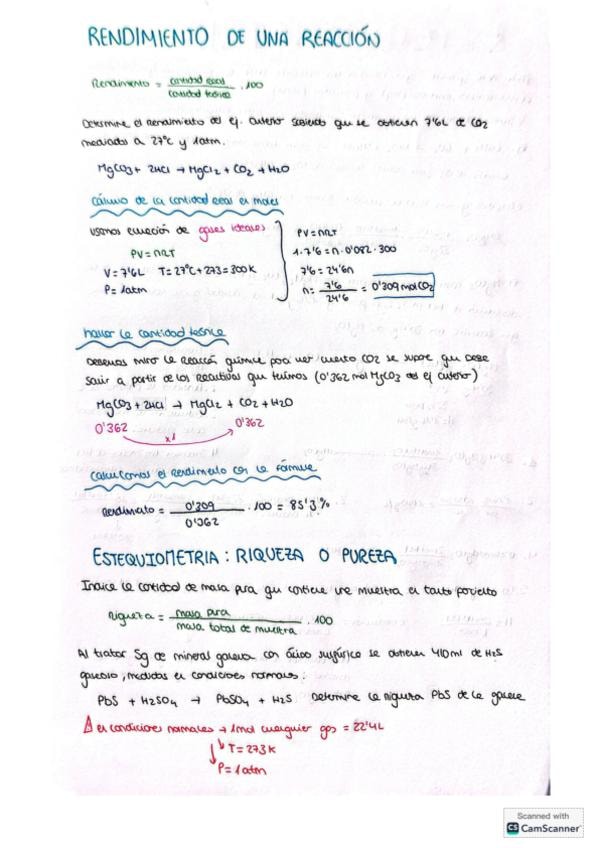 RENDIMIENTO DE UNA REACCIÓN
Rendimiento = cantidad real / cantidad teórica · 100
Determine el rendimiento del ej. anterior sabiendo que se obtienen 7'6L de CO2
medidos a 27°C y 1atm.
MgCO3 + 2HCl → MgCl2 + CO2 + H2O
cálculo de la cantidad real en moles
usamos ecuación de gases ideales
PV = nRT
V = 7'6L T = 27°C + 273 = 300K
P = 1atm
PV = nRT
1 · 7'6 = n · 0'082 · 300
7'6 = 24'6n
n = 7'6 / 24'6 = 0'309 mol CO2
hallar la cantidad teórica
Debemos mirar la reacción química para ver cuanto CO2 se supone que debe
salir a partir de los reactivos que tenemos (0'362 mol MgCO3 del ej anterior)
MgCO3 + 2HCl → MgCl2 + CO2 + H2O
0'362 0'362
x1
calculamos el rendimiento con la fórmula
Rendimiento = 0'309 / 0'362 · 100 = 85'3%
ESTEQUIOMETRIA: RIQUEZA O PUREZA
Indica la cantidad de masa pura que contiene una muestra en tanto porciento
riqueza = masa pura / masa total de muestra · 100
Al tratar 5g de mineral galena con ácido sulfúrico se obtienen 410ml de H2S
gaseoso, medidos en condiciones normales:
PbS + H2SO4 → PbSO4 + H2S Determine la riqueza PbS de la galena
⚠ en condiciones normales → 1mol cualquier gas = 22'4L
T = 273K
P = 1atm
Scanned with
CS CamScanner